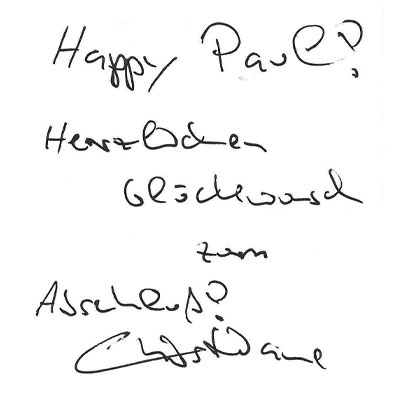 Happy Paul!
Herzlichen
Glückwunsch
zum
Abschluß!
Christiane